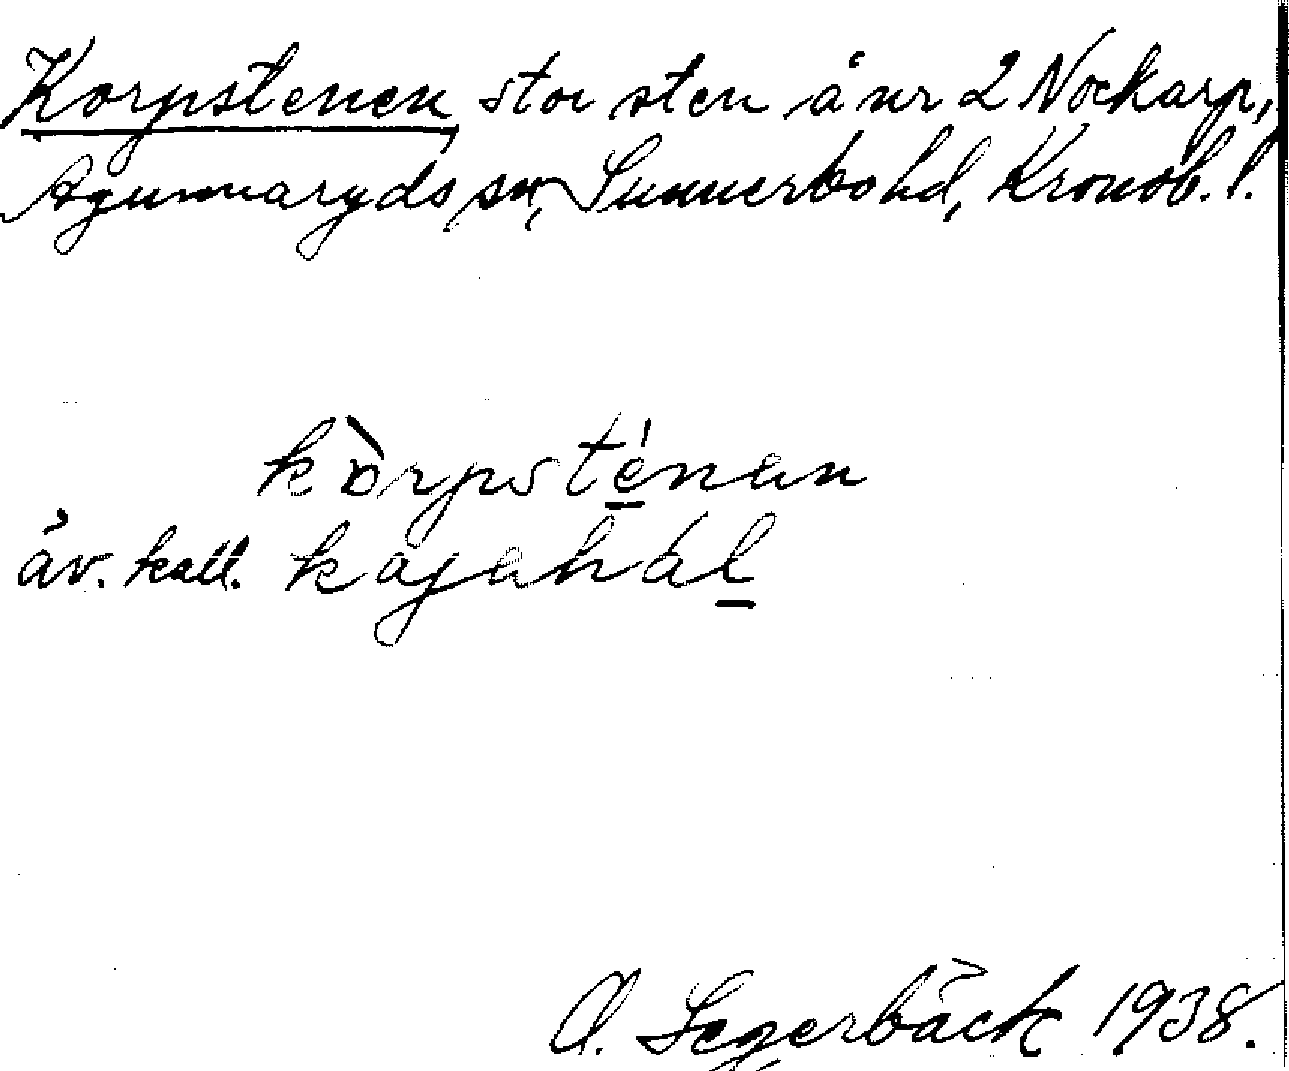 Korpstenen stor sten å nr 2 Nockarp,
Agunnaryds sn, Sunnerbo hd, Kronob. l.
kòrpsténan
äv. kall. kajahál
O. Segerbäck 1938.